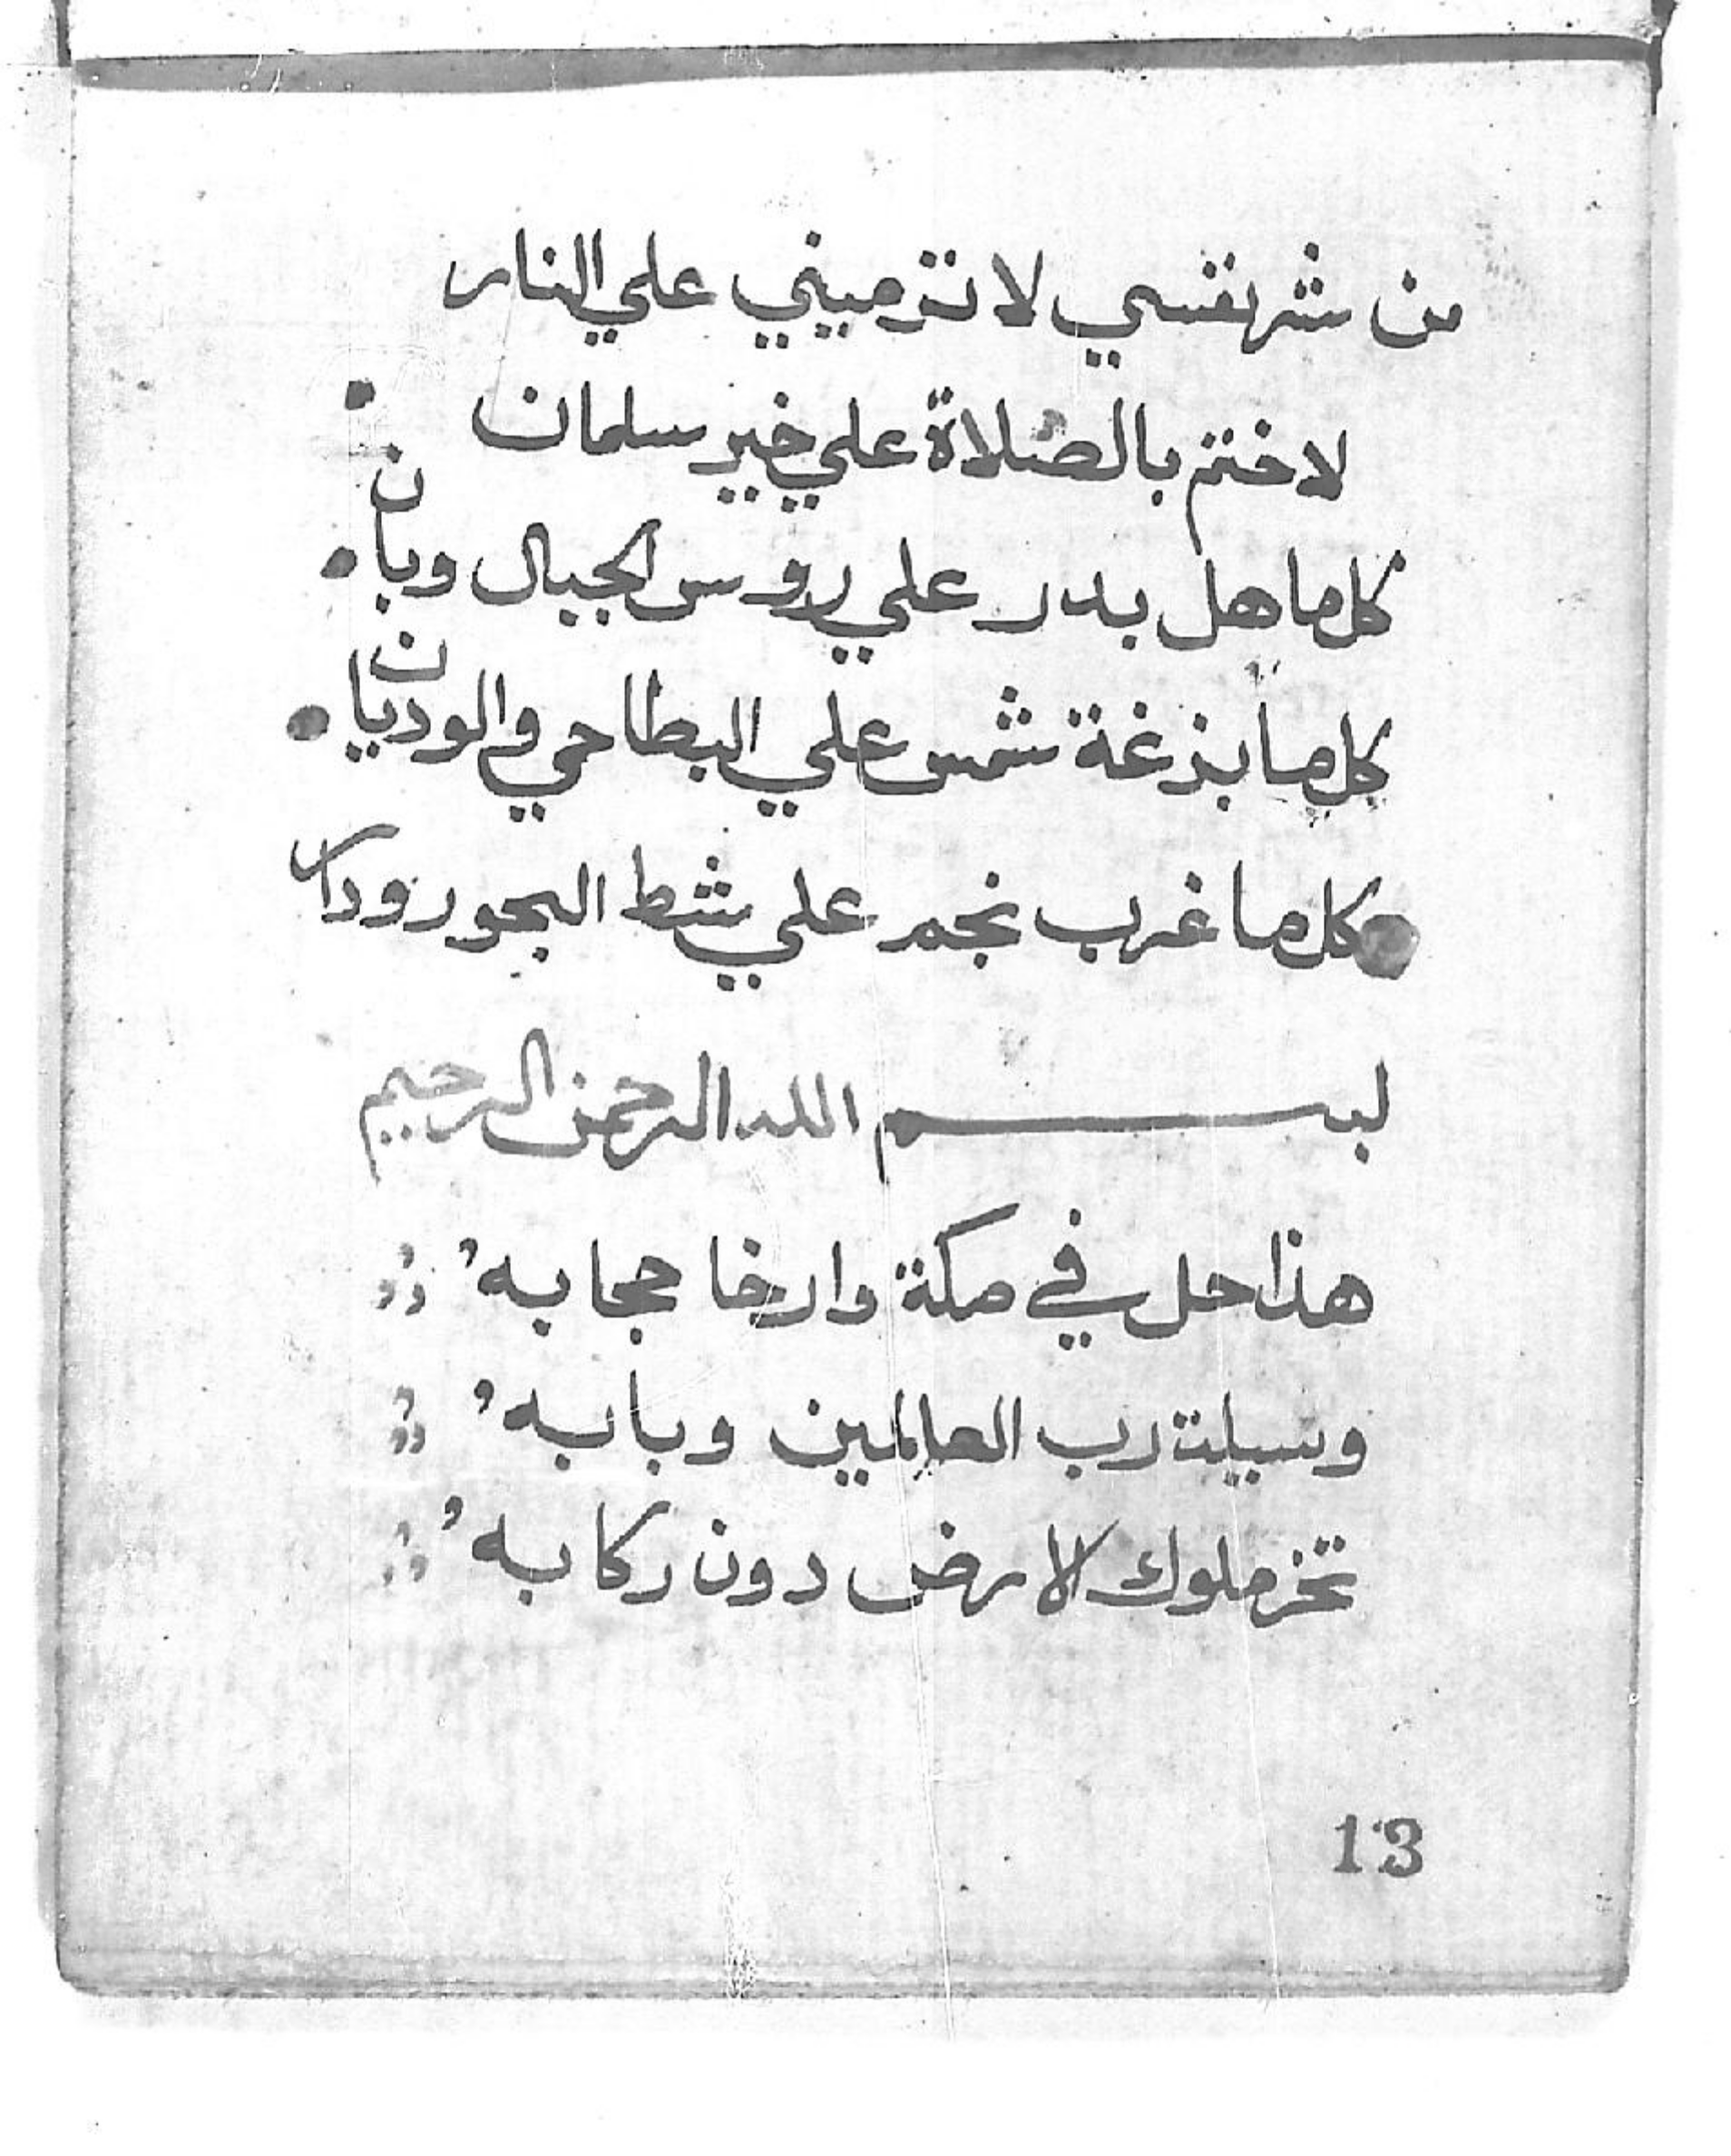 من شر نفسي لا ترميني علي النار
لاختم بالصلاة علي خير سلمان
كل ما هل بدر علي روس الجبال وبان
كل ما بزغة شمس علي البطاحي والوديان
كل ما غرب نجم علي شط البحور ودار
بسم الله الرحمن الرحيم
هذا حل في مكة وارخا حجابه
وسيلة رب العالمين وبابه
تخر ملوك الارض دون ركابه
13